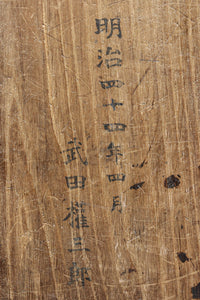 明治四十四年四月
武田雄三郎